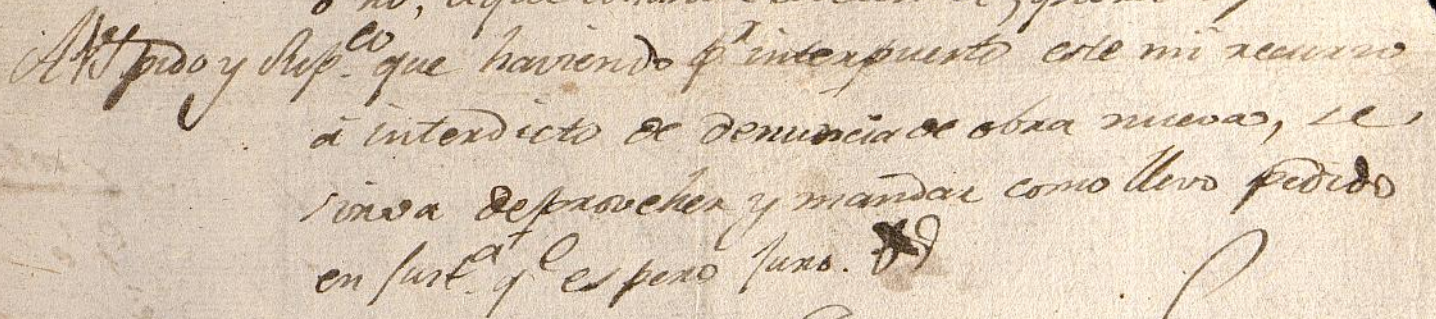 AVS pido y Sup.co que haviendo p.r interpuesto este mi recurso
á interdicto de denuncia de obra nueva, se
sirva de proveher y mandar como llevo pedido
en Just.a q.e espero Juro.